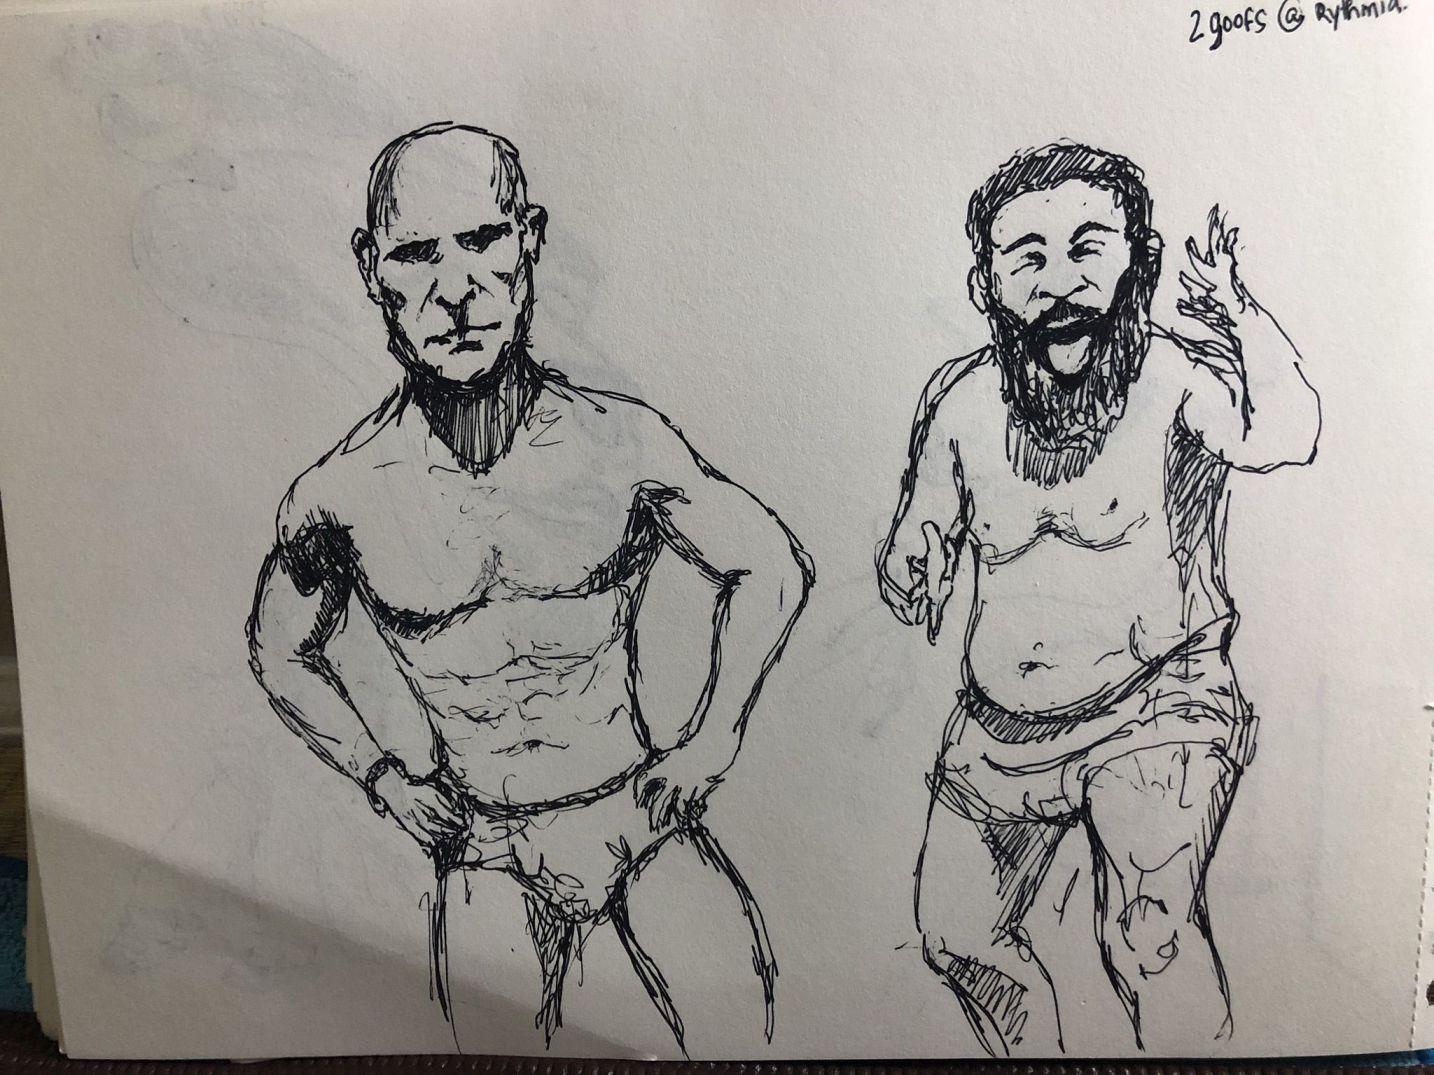 2 goofs @ Rythmia.